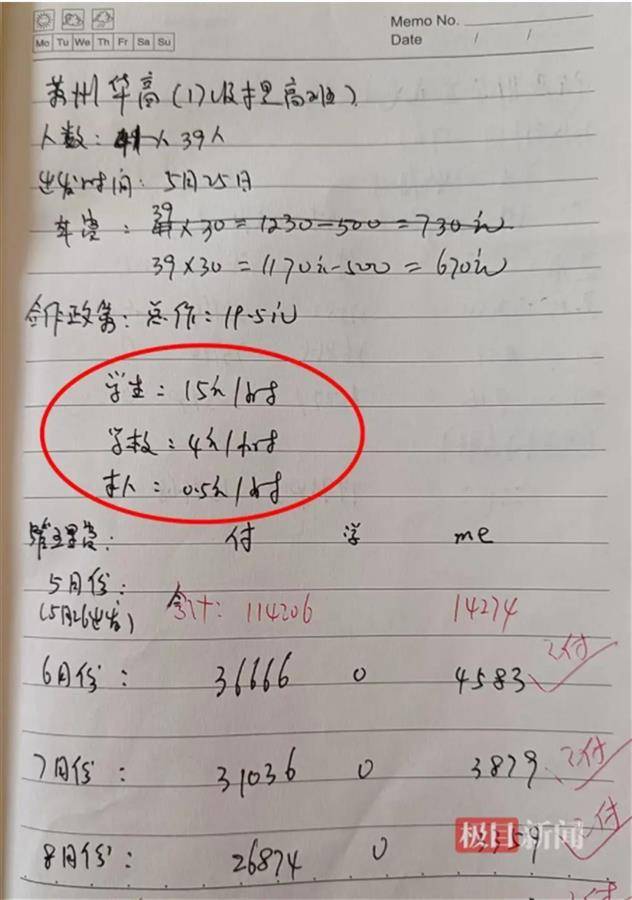 Memo No.
Mo Tu We Th Fr Sa Su
Date / /
苏州华高(17级提高班)
人数: 41人 39人
出发时间: 5月25日
39
车费: 41×30=1230-500=730元
39×30=1170元-500=670元
合作政策: 总价: 19.5元
学生: 15元/小时
学校: 4元/小时
本人: 0.5元/小时
管理费: 付 学 me
5月份:
(5月26出发) 合计: 114206 14274
已付
6月份: 36666 0 4583
已付
7月份: 31036 0 3879
极目新闻 已付
8月份: 26874 0 3359